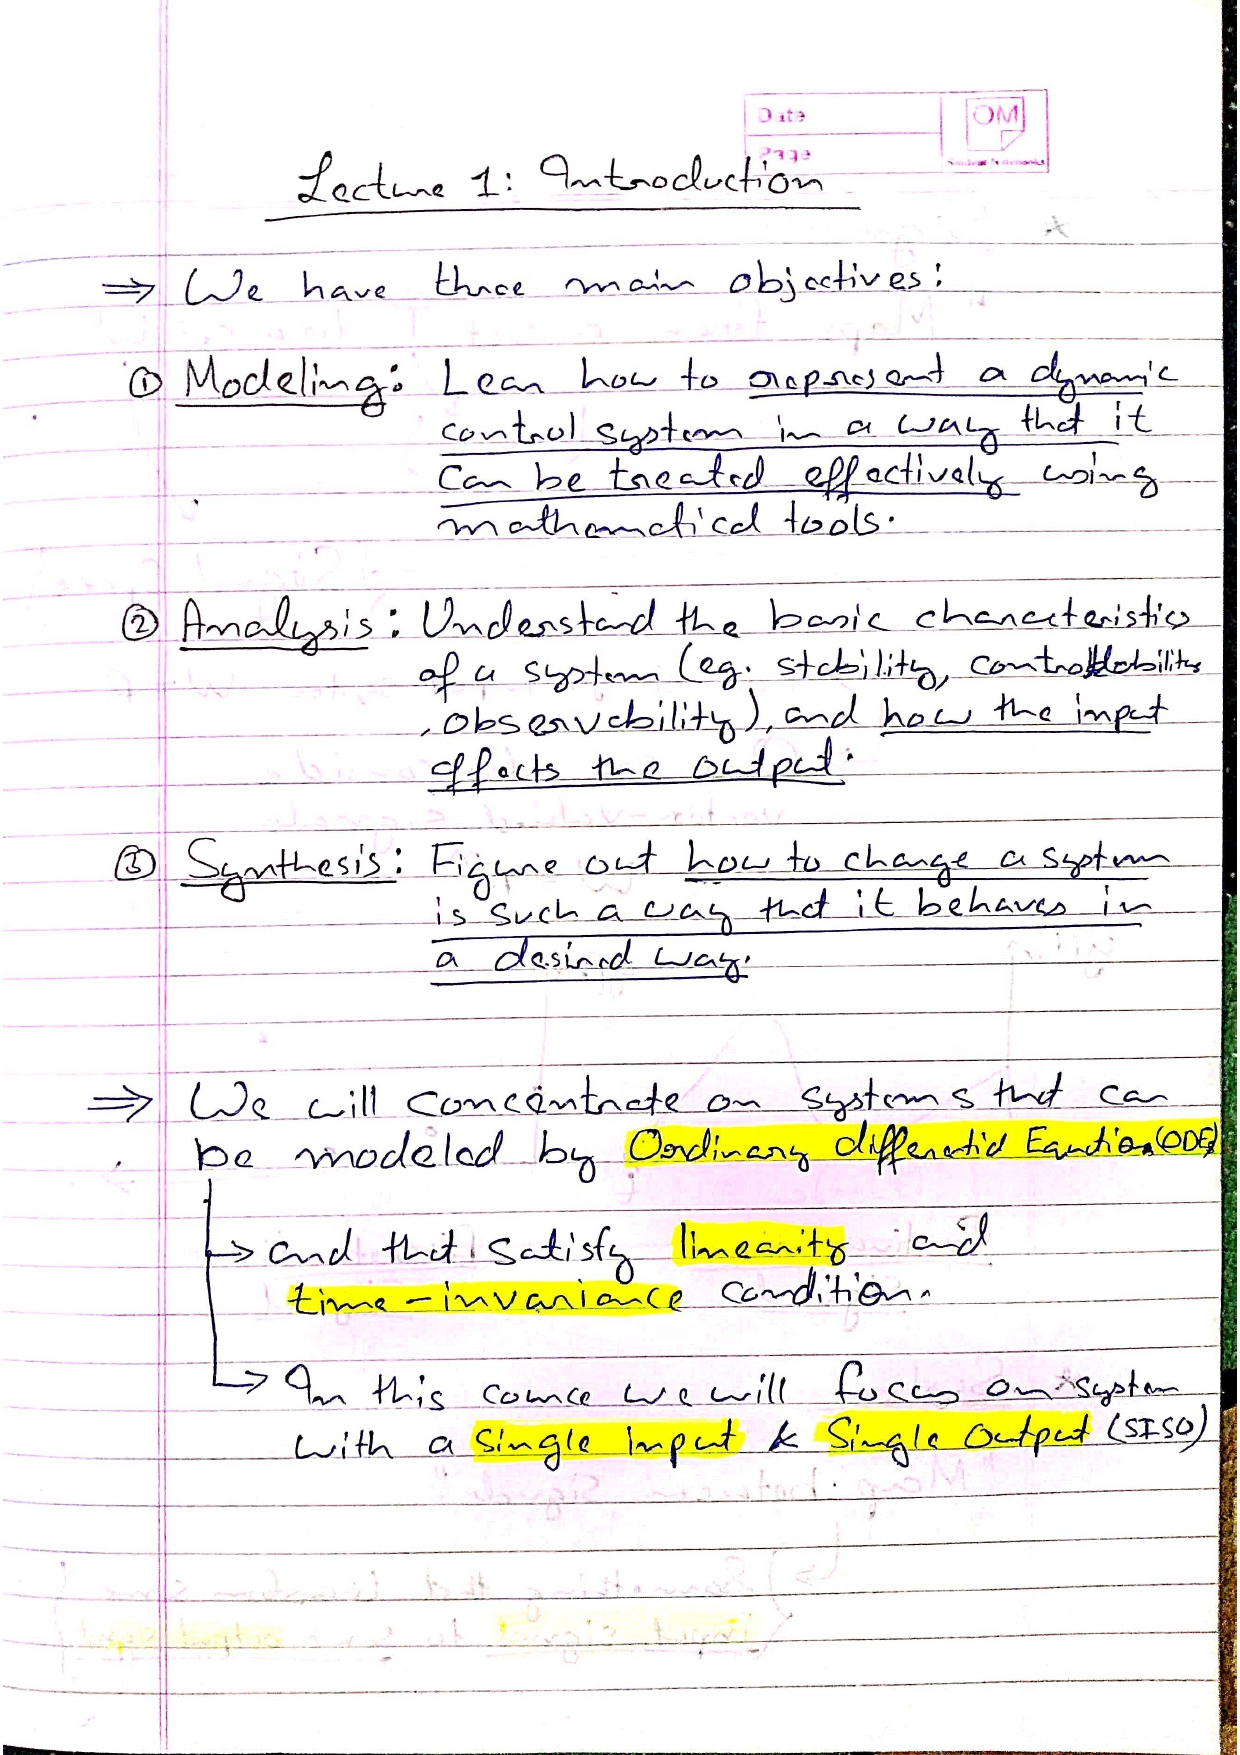 Date
OM
Page
Lecture 1: Introduction
⇒ We have three main objectives:
① Modeling: Lear how to represent a dynamic
control system in a way that it
can be treated effectively using
mathematical tools.
② Analysis: Understand the basic characteristics
of a system (eg. stability, controllability
, observability), and how the input
effects the output.
③ Synthesis: Figure out how to change a system
is such a way that it behaves in
a desired way.
⇒ We will concentrate on systems that can
be modeled by Ordinary differential Equation (ODE)
→ and that satisfy linearity and
time-invariance condition.
→ In this cource we will focus on system
with a single Input & Single Output (SISO)